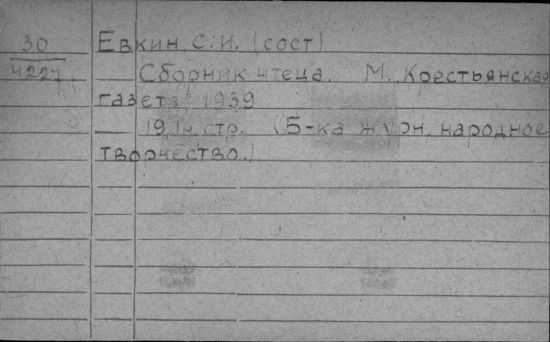 30
4227.
Евкин С.И. (сост)
Сборник чтеца. М., Крестьянская
газета 1939
стр. (Б-ка журн. народное
творчество.)